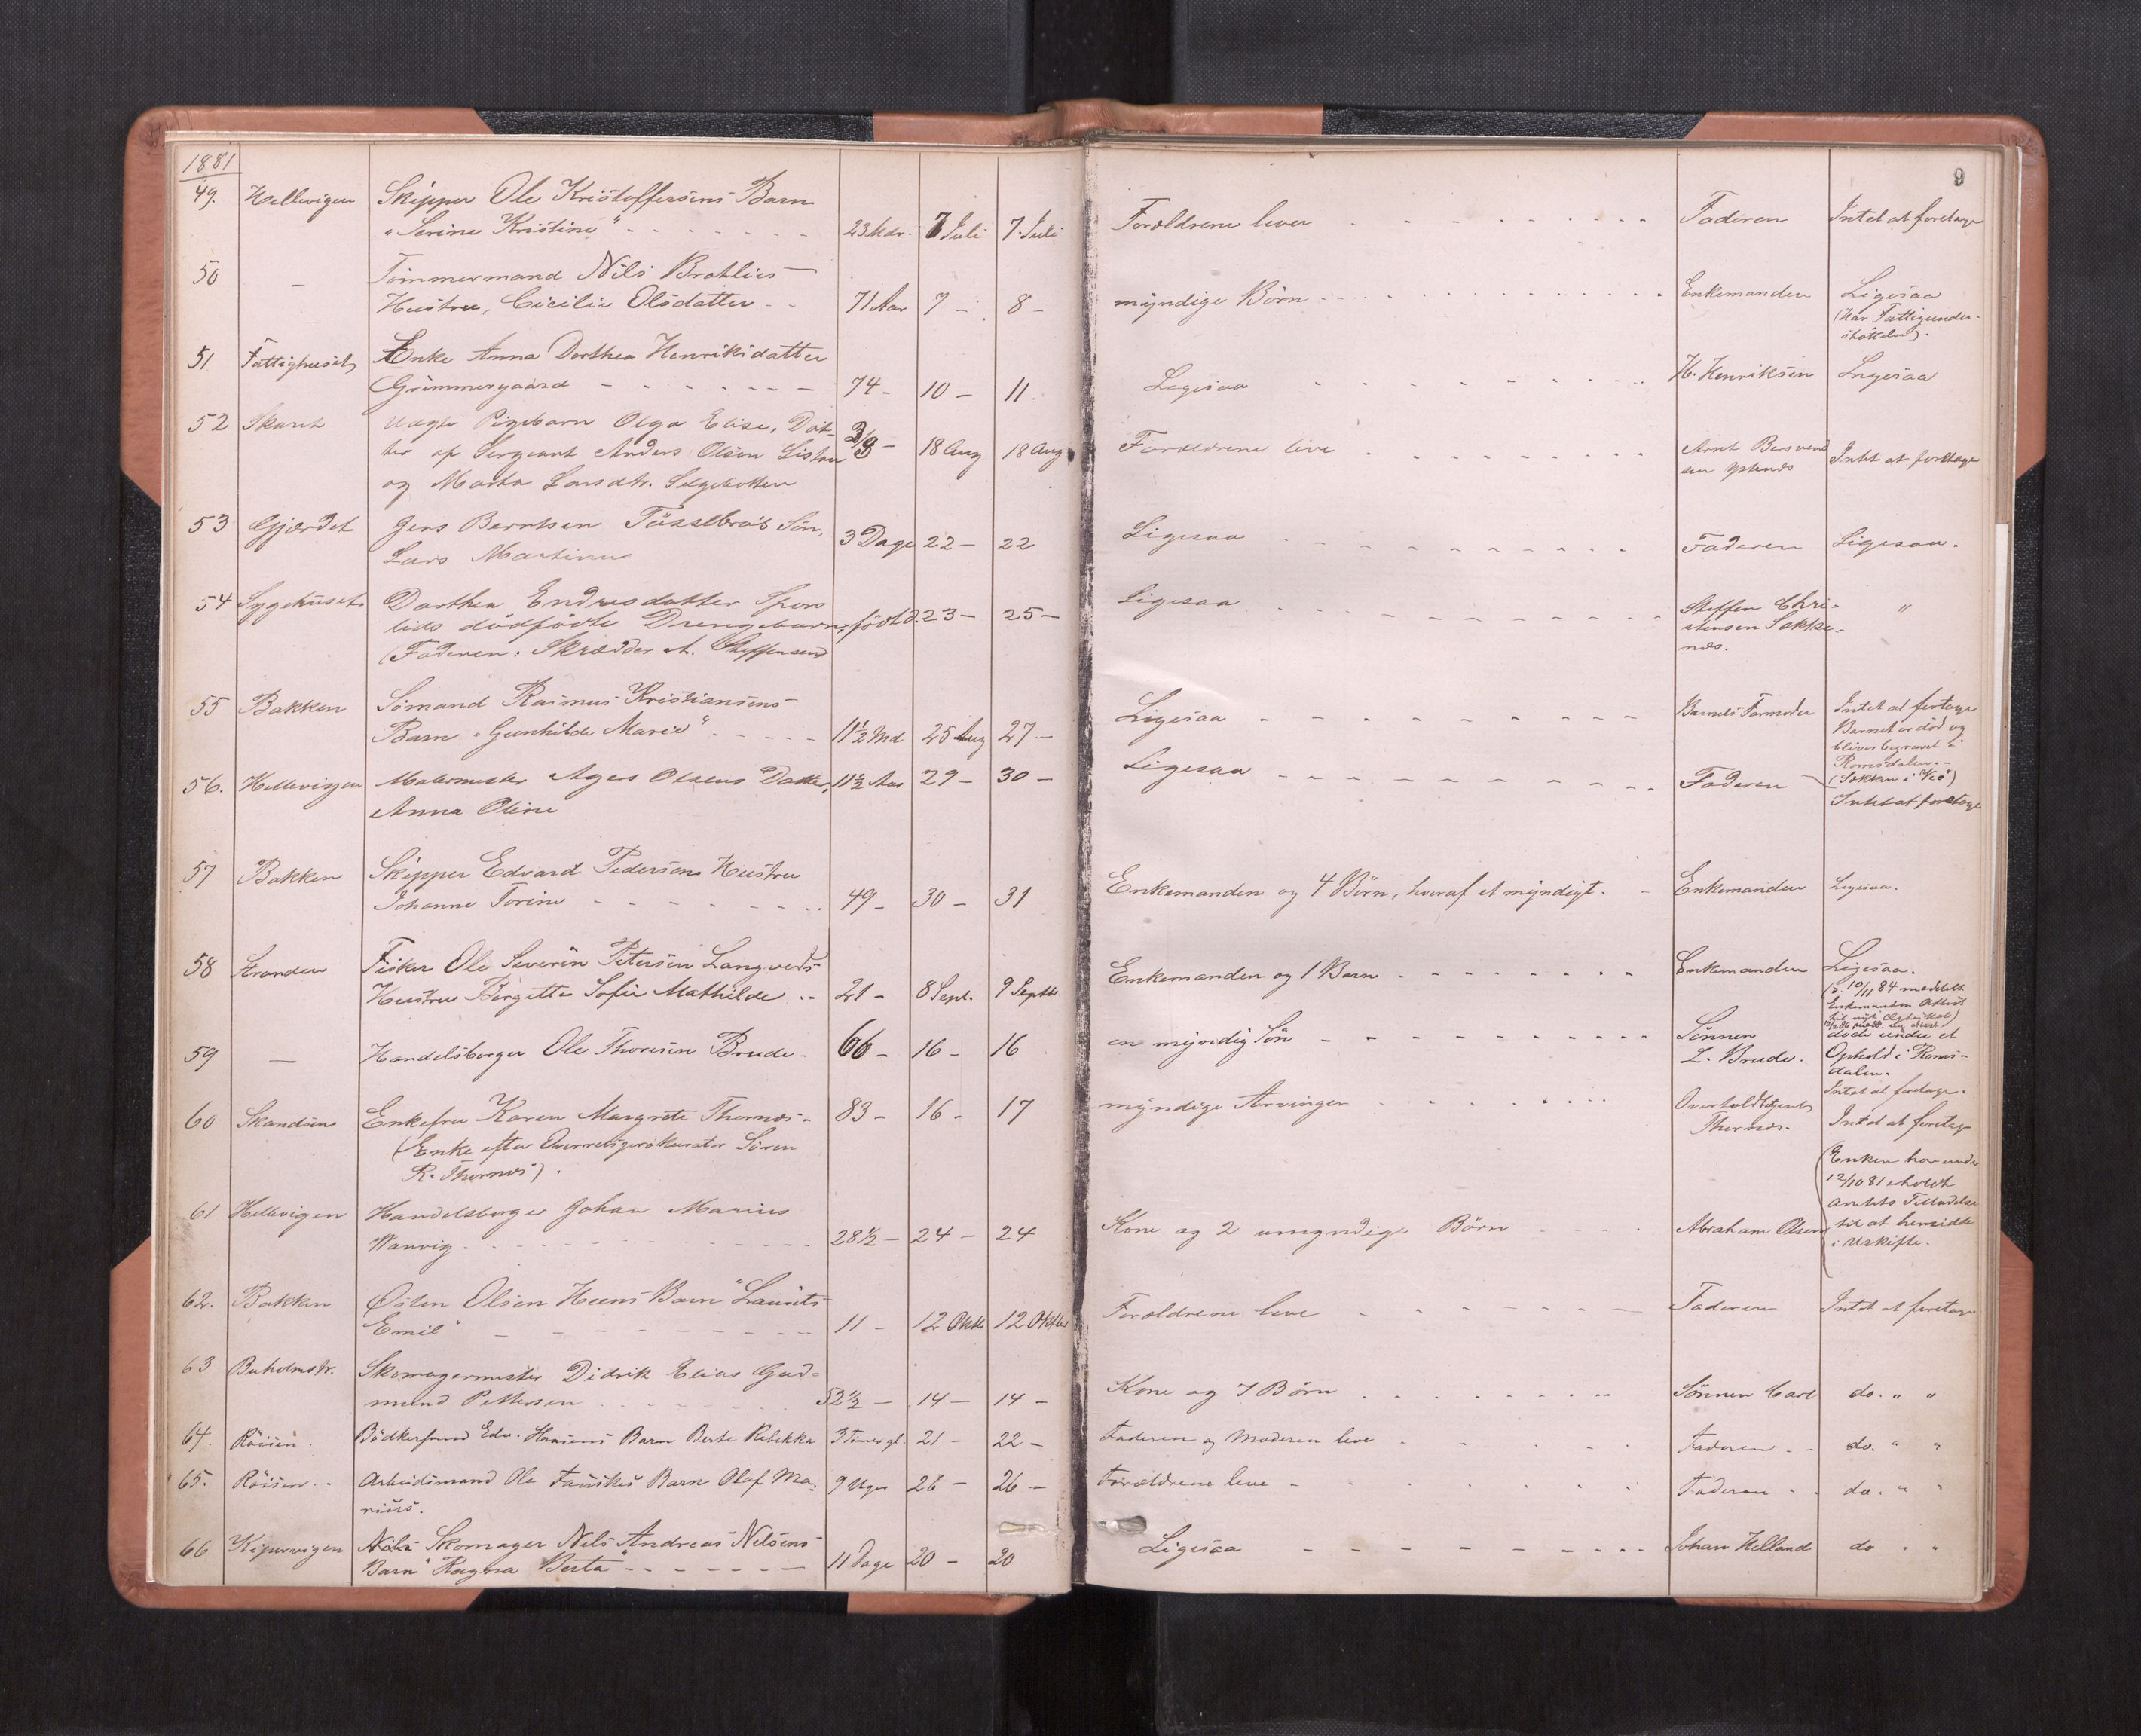 9
1881
49. Hellevigen Skipper Ole Kristoffersens Barn
"Serine Kristine" 23 Mdr. 7 Juli 7. Juli Forældrene lever Faderen Intet at foretage
50 – Tømmermand Nils Brathlies
Hustru, Cicilie Olsdatter 71 Aar 7 – 8 – myndige Børn Enkemanden Ligesaa
(Har Fattigunder-
støttelse).
51 Fattighuset Enke Anna Dorthea Henriksdatter
Grimmergaard 74 – 10 – 11. Ligesaa H. Henriksen Ligesaa
52 Skaret uægte Pigebarn Olga Elise, Dat-
ter af Sergeant Anders Olsen 18 Aug 18 Aug Forældrene leve Arnt
og Marta Larsdtr. Intet at foretage
53 Gjærdet Jens Berntsen Søn,
Lars Martinus 3 Dage 22 – 22 Ligesaa Faderen Ligesaa.
54 Sygehuset Dorthea Endresdatter
lids dødfødte Drengebarn, født d. 23 – 25 – Ligesaa Steffen Chri-
stensen Sække-
næs. "
(Faderen: Skrædder A. Steffensen)
55 Bakken Sømand Rasmus Kristiansens
Barn "Gunhilde Marie" 11½ Md 25 Aug 27 – Ligesaa Barnets Farmoder Intet at foretage
Barnet er død og
bliver begravet i
Romsdalen. –
(Sekken i Veø)
56. Hellevigen Malermester Agers Olsens Datter, 11½ Aar 29 – 30 – Ligesaa Faderen
Anna Oline Intet at foretage
57 Bakken Skipper Edvard Pedersens Hustru
Johanne Torine 49 – 30 – 31 Enkemanden og 4 Børn, hvoraf et myndigt. – Enkemanden Ligesaa.
58 Stranden Fisker Ole Severin Petersen Langveds
Hustru Birgitte Sofie Mathilde 21 – 8 Sept. 9 Septbr Enkemanden og 1 Barn Enkemanden Ligesaa.
(d. 10/11 84 meddelt
Enkemanden Attest
59 – Handelsborger Ole Thoresen Brude 66 – 16 – 16 en myndig Søn Sønnen
L. Brude. døde under et
Ophold i Roms-
dalen.
Intet at foretage.
60 Enkefru Karen Margrete Thernæs 83 – 16 – 17 myndige Arvinger
Thernæs. Intet at foretage
(Enke efter Overretsprokurator Søren
R. Thernæs).
(Enken har under
12/10 81 erholdt
Amtets Tilladelse
til at hensidde
i Uskifte.
61 Hellevigen Handelsborger Johan Marius
Wanvig 28½ – 24 – 24 Kone og 2 umyndige Børn Abraham Olsen
62. Bakken Østen Olsen Heens Barn "Laurits
Emil" 11 – 12 Oktb 12 Oktbr Forældrene leve Faderen Intet at foretage
63 Buholmstr. Skomagermester Didrik Elias Gud-
mund Pettersen 52½ – 14 – 14 – Kone og 7 Børn Sønnen Carl do. " "
64. Røisen. Bødkersvend Edv. Hansens Barn Berte Rebekka 3 Timer gl. 21 – 22 – Faderen og Moderen leve Faderen do. " "
65. Røisen. Arbeidsmand Ole Fauskes Barn Olaf Ma-
rius. 9 Uger 26 – 26 – Forældrene leve Faderen do. " "
66 Kipervigen Skomager Nils Andreas Nilsens
Barn "Ragna Berta" 11 Dage 20 – 20 Ligesaa Johan Helland do " "